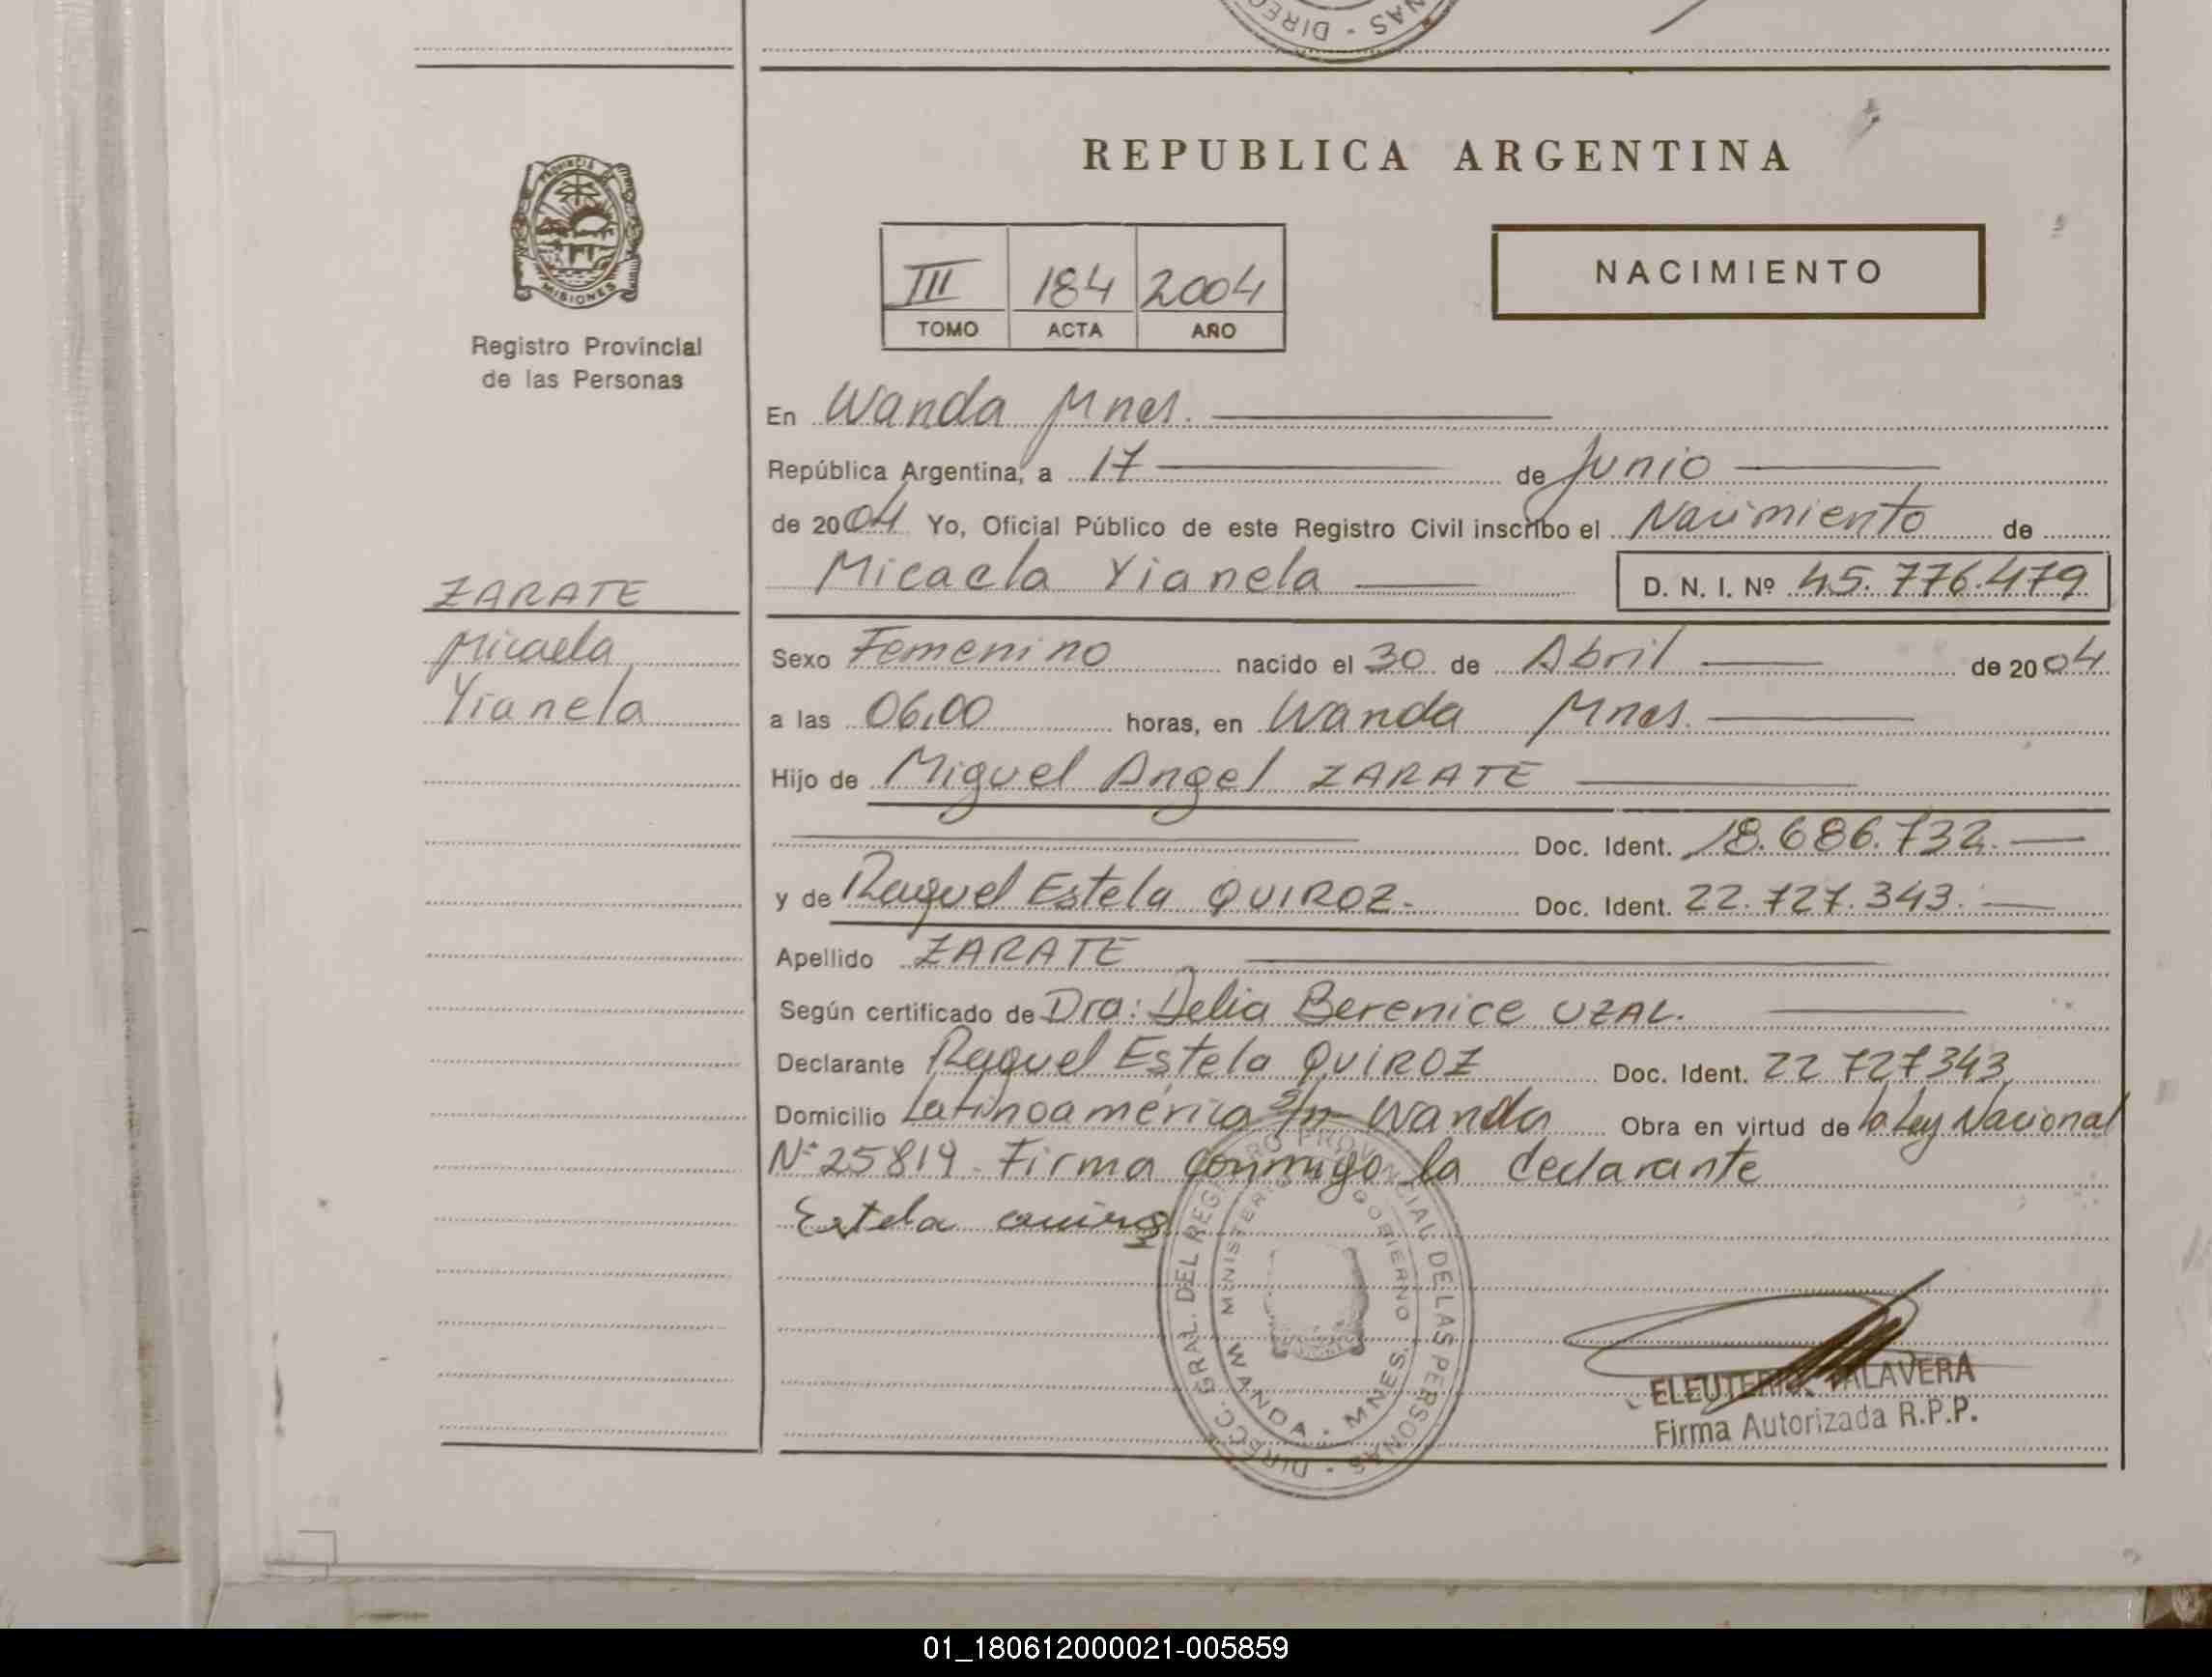 REPUBLICA ARGENTINA
PROVINCIA DE MISIONES
Registro Provincial
de las Personas
III 184 2004
TOMO ACTA AÑO
NACIMIENTO
En Wanda Mnes.
República Argentina, a 17 de Junio
de 2004 Yo, Oficial Público de este Registro Civil inscribo el Nacimiento de
Micaela Yianela D. N. I. Nº 45.776.479
ZARATE
Micaela
Yianela
Sexo Femenino nacido el 30 de Abril de 2004
a las 06,00 horas, en Wanda Mnes.
Hijo de Miguel Angel ZARATE
Doc. Ident. 18.686.732.
y de Raquel Estela QUIROZ. Doc. Ident. 22.727.343.
Apellido ZARATE
Según certificado de Dra: Delia Berenice UZAL.
Declarante Raquel Estela QUIROZ Doc. Ident. 22 727343
Domicilio Latinoamérica s/n Wanda Obra en virtud de la Ley Nacional
Nº 25819. Firma conmigo la declarante
Estela
DIRECC. GRAL. DEL REGISTRO PROVINCIAL DE LAS PERSONAS
MINISTERIO GOBIERNO
WANDA - MNES.
TALAVERA
Firma Autorizada R.P.P.
01_180612000021-005859